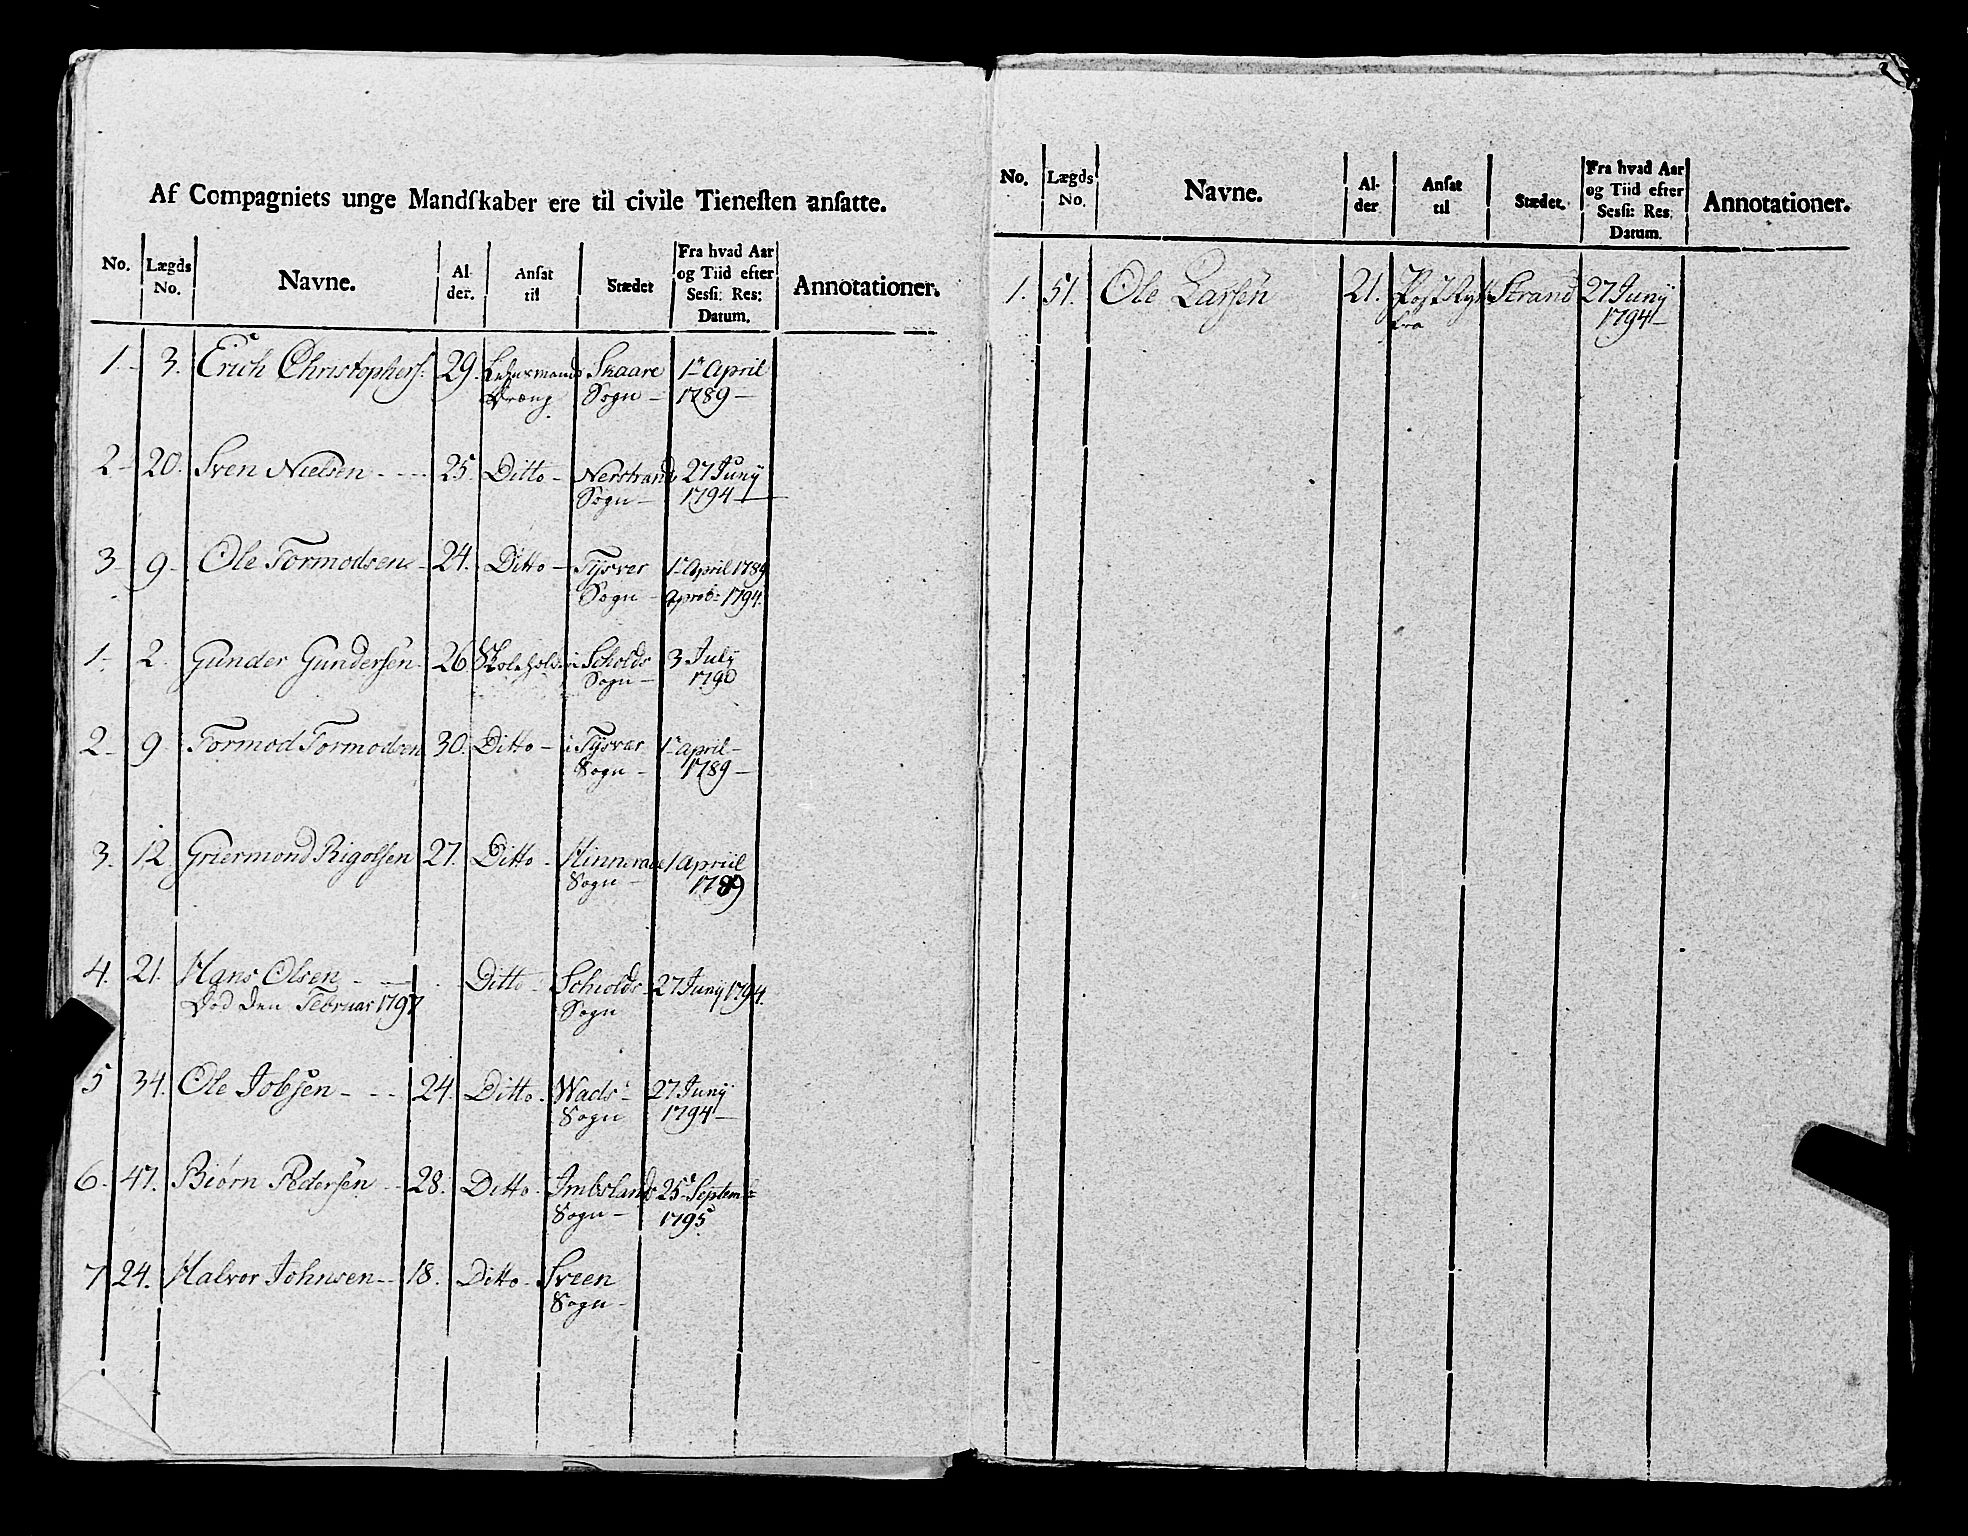 Af Compagniets unge Mandſkaber ere til civile Tieneſten anſatte.
No. Lægds No. Navne. Al-der. Anſat til Stædet Fra hvad Aar og Tiid efter Sesſi: Res: Datum. Annotationer.
1- 3. Erich Christophers. 29. Lehnsmands Skaare 1te April
Dræng Sogn - 1789 -
2- 20. Sven Nielsen - - - 25. Ditto - Nerstrand 27 Juny
Sogn - 1794 -
3- 9- Ole Tormodsen - 24. Ditto - Tysver 1te April 1789
Sogn - aprob: 1794.
1- 2. Gunder Gundersen 26 Skolehold. i Scholds 3 July
Sogn - 1790
2- 9 Tormod Tormodsen 30. Ditto - i Tysvær 1te April -
Sogn - 1789 -
3. 12 27. Ditto - 1 Apriil
Sogn - 1789
4. 21. Hans Olsen - - - Ditto - Schiolds 27 Juny 1794.
Død den Februar 1797 Sogn
5 34. Ole Jobsen - - - 24. Ditto. Wads- 27 Juny
Sogn 1794 -
6- 47. Biørn Pedersen - 28. Ditto. Imbslands 25de Septem:
Sogn - 1795
7 24. Halvor Johnsen - - 18. Ditto - Sveen
Sogn -
No. Lægds No. Navne. Al-der Anſat til Stædet. Fra hvad Aar og Tiid efter Sesſi: Res. Datum. Annotationer.
1. 51. Ole Larsen 21. Strand 27 Juny
fra 1794 -